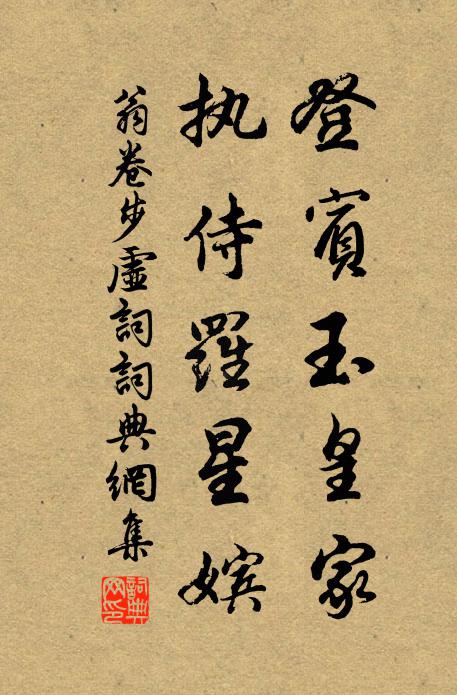 登賓玉皇家
执侍羅星嬪
翁卷步虛詞詞典網集
詞典网印